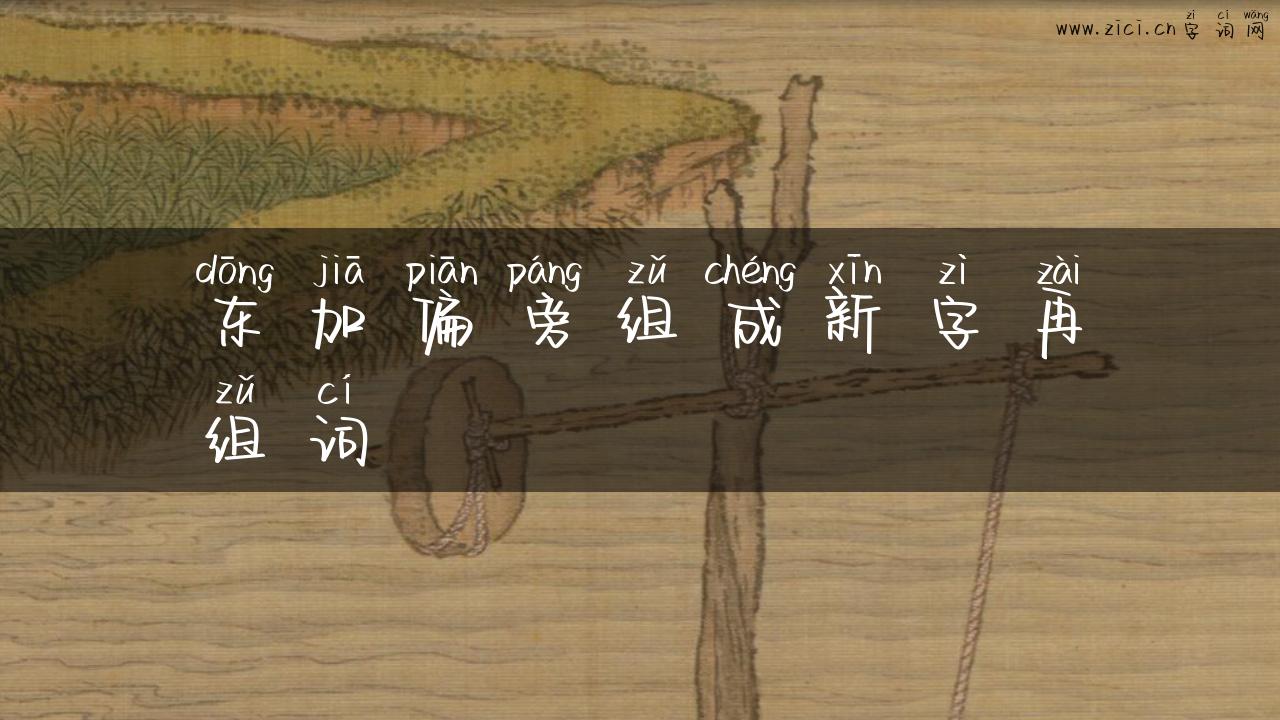 zì cí wǎng
www.zici.cn 字词网
dōng jiā piān páng zǔ chéng xīn zì zài
东加偏旁组成新字再
zǔ cí
组词